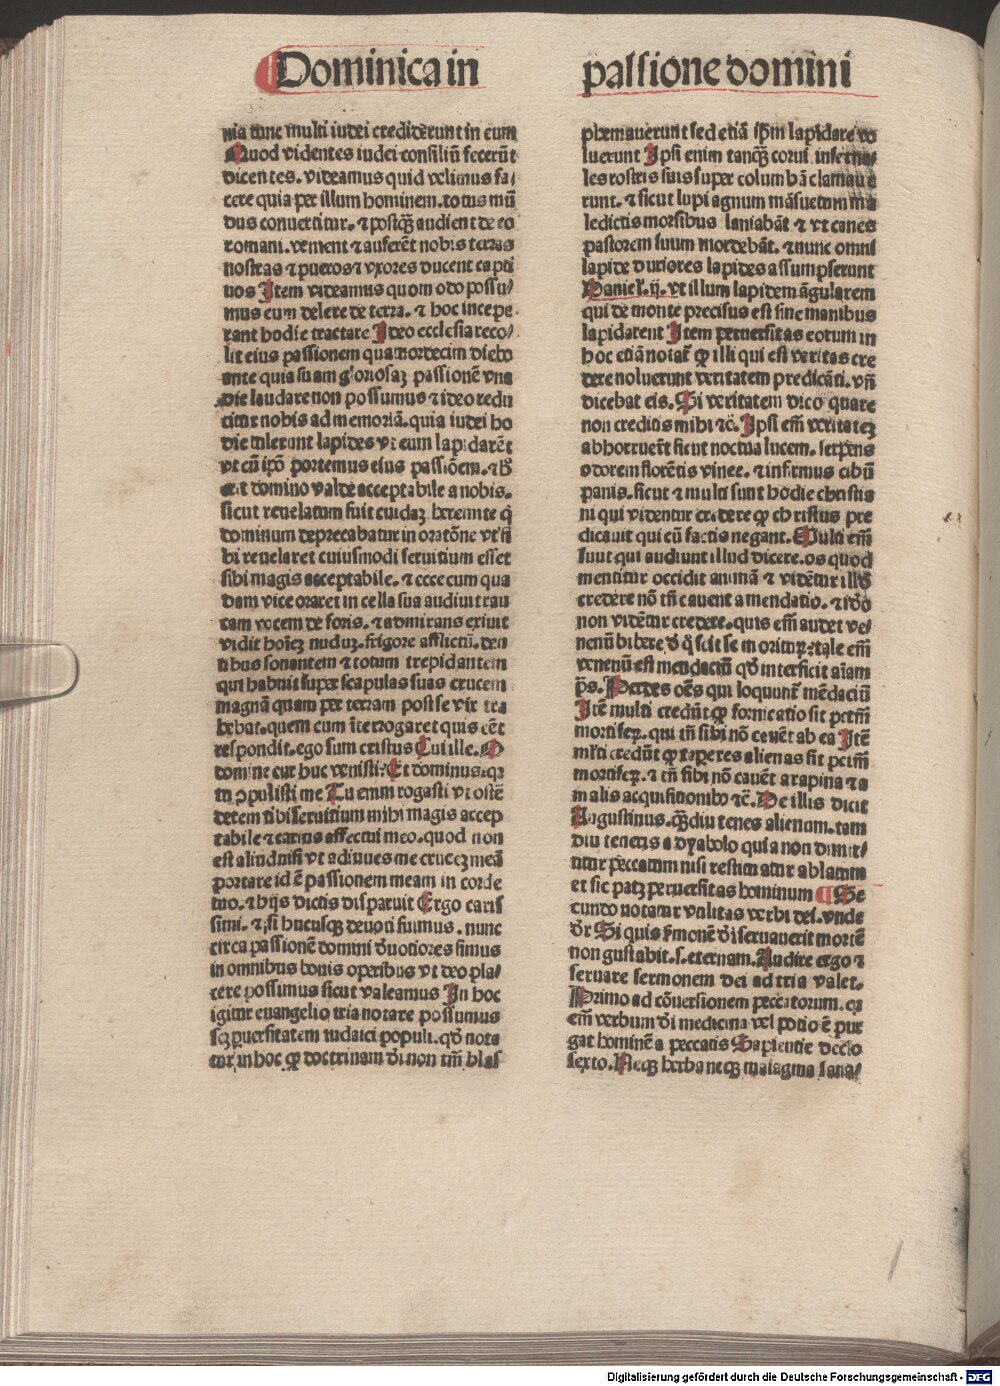 Dominica in
passione domini
nia tunc multi iudei crediderunt in eum
Quod videntes iudei consiliū fecerūt
dicentes. videamus quid velimus fa/
cere quia per illum hominem. totus mū
dus conuertitur. ⁊ postqȝ audient de eo
romani. venient ⁊ auferēt nobis terras
nostras ⁊ pueros ⁊ vxores ducent capti
uos Item videamus quomodo possu/
mus eum delere de terra. ⁊ hoc incepe
rant hodie tractare Ideo ecclesia reco/
lit eius passionem quatuordecim diebꝰ
ante quia suam gloriosaȝ passionē vna
die laudare non possumus ⁊ ideo redu
citur nobis ad memoriā. quia iudei ho
die tulerunt lapides vt eum lapidarēt
vt cū ipō portemus eius passiōem. ⁊ hͦ
erit domino valde acceptabile a nobis.
sicut reuelatum fuit cuidaȝ heremite q̇
dominum deprecabatur in oratōne vt si
bi reuelaret cuiusmodi seruitium esset
sibi magis acceptabile. ⁊ ecce cum qua
dam vice oraret in cella sua audiuit rau
cam vocem de foris. ⁊ admirans exiuit
vidit hoīeȝ nuduȝ. frigore afflictū. den
tibus sonantem ⁊ totum trepidantem
qui habuit super scapulas suas crucem
magnā quam per terram post se vix tra
hebat. quem cum īterrogaret quis eēt
respondit. ego sum cristus Cui ille. O
domine cur huc venisti? Et dominus. qꝛ
tu ↄpulisti me Tu enim rogasti vt ostē
derem tibi seruitium mihi magis accep
tabile ⁊ carius affectui meo. quod non
est aliud nisi vt adiuues me cruceȝ meā
portare id ē passionem meam in corde
tuo. ⁊ hijs dictis disparuit Ergo cariſ
simi. ⁊ si hucusqȝ deuoti fuimus. nunc
circa passionē domini dͤuotiores simus
in omnibus bonis operibus vt deo pla/
cere possimus sicut valeamus In hoc
igitur euangelio tria notare possumus
sȝ ꝑuersitatem iudaici populi. qd̓ nota
tur in hoc ꝙ doctrinam dei non tm̄ blas
phemauerunt sed etiā ip̄m lapidare vo
luerunt Ipsi enim tanqȝ corui inferna/
les rostris suis super columbā clamaue
runt. ⁊ sicut lupi agnum māsuetum ma
ledictis morsibus laniabāt ⁊ vt canes
pastorem suum mordebāt. ⁊ nunc omni
lapide duriores lapides assumpserunt
Daniel. ij. vt illum lapidem āgularem
qui de monte precisus est sine manibus
lapidarent Item peruersitas eorum in
hoc etiā notat̄ ꝙ illi qui est veritas cre
dere noluerunt veritatem predicāti. vn̄
dicebat eis. Si veritatem dico quare
non creditis mihi ⁊c̄. Ipsi em̄ veritateȝ
abhorruerūt sicut noctua lucem. serpens
odorem florētis vinee. ⁊ infirmus cibū
panis. sicut ⁊ multi sunt hodie christia
ni qui videntur credere ꝙ christus pre
dicauit qui eū factis negant. Multi em̄
sunt qui audiunt illud dicere. os quod
mentitur occidit animā ⁊ vidētur illd̓
credere nō tn̄ cauent a mendatio. ⁊ idō
non vidētur credere. quis em̄ audet ve/
nenū bibere de q̇ scit se moriturȝ. tale em̄
venenū est mendaciū qd̓ interficit aīam
p̄s. Perdes oēs qui loquunt̄ mēdaciū
Itē multi credūt ꝙ fornicatio sit pctm̄
mortiferȝ. qui tn̄ sibi nō cauēt ab ea Itē
mlti credūt ꝙ rapere res alienas sit pctm̄
mortiferȝ. ⁊ tn̄ sibi nō cauēt a rapina ⁊ a
malis acquisitionibꝰ ⁊c̄. De illis dicit
Augustinus. qȝdiu tenes alienum. tam
diu teneris a dyabolo quia non dimit/
titur peccatum nisi restituatur ablatum
et sic patȝ peruersitas hominum ¶ Se
cundo notatur vtilitas verbi dei. vnde
dr̄ Si quis s̓monē dei seruauerit mortē
non gustabit. s. eternam. Audire ergo ⁊
seruare sermonem dei ad tria valet.
Primo ad cōuersionem peccatorum. qꝛ
em̄ verbum dei medicina vel potio ē pur
gat hominē a peccatis Sapientie decio
sexto. Neqȝ herba neqȝ malagma sana/
Digitalisierung gefördert durch die Deutsche Forschungsgemeinschaft - DFG